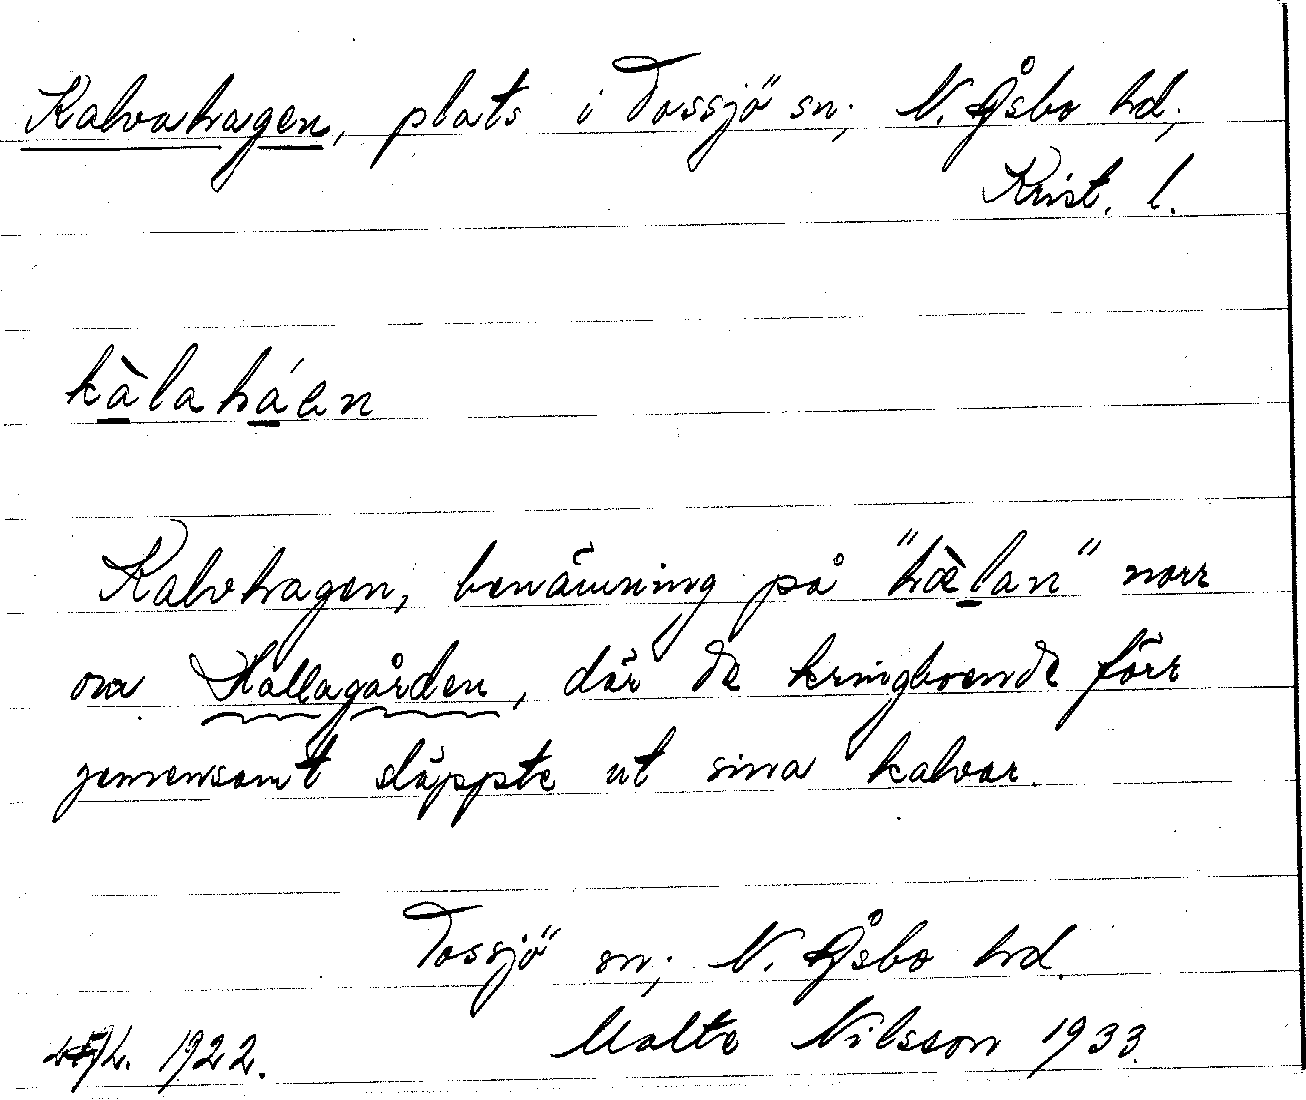 Kalvahagen, plats i Tossjö sn; N. Åsbo hd;
Krist. l.
kàlaháen
Kalvhagen, benämning på "hælan" norr
om Hallagården, där de kringboende förr
gemensamt släppte ut sina kalvar.
Tossjö sn; N. Åsbo hd.
1922. Malte Nilsson 1933.